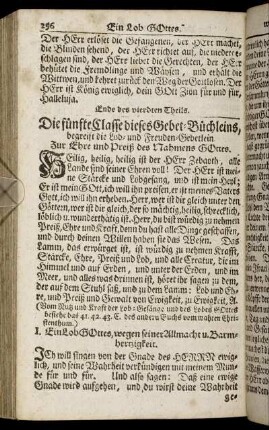 296 Ein Lob GOttes.
Der HErr erlöset die Gefangenen, der HErr machet,
die Blinden sehend, der HErr richtet auf, die niederge-
schlagen sind, der HErr liebet die Gerechten, der HErr
behütet die Fremdlinge und Wäysen, und erhält die
Wittwen, und kehret zurück den Weg der Gottlosen. Der
HErr ist König ewiglich, dein GOtt Zion für und für,
Halleluja.
Ende des vierdten Theils.
Die fünfte Classe dieses Gebet-Büchleins,
begreift die Lob- und Freuden-Gebetlein
Zur Ehre und Preiß des Nahmens GOttes.
Heilig, heilig, heilig ist der HErr Zebaoth, alle
Lande sind seiner Ehren voll! Der HErr ist mei-
ne Stärcke und Lobgesang, und ist mein Heyl;
Er ist mein GOtt, ich will ihn preisen, er ist meines Vaters
Gott, ich will ihn erheben. Herr, wer ist dir gleich unter den
Göttern, wer ist dir gleich, der so mächtig, heilig, schrecklich,
löblich u. wunderthätig ist. Herr, du bist würdig zu nehmen
Preiß, Ehre und Kraft, denn du hast alle Dinge geschaffen,
und durch deinen Willen haben sie das Wesen. Das
Lamm, das erwürget ist, ist würdig zu nehmen Krafft,
Stärcke, Ehre, Preiß und Lob, und alle Creatur, die im
Himmel und auf Erden, und unter der Erden, und im
Meer, und alles was drinnen ist, höret ihr sagen zu dem,
der auf dem Stuhl saß, und zu dem Lamm: Lob und Eh-
re, und Preiß und Gewalt von Ewigkeit, zu Ewigkeit, A.
Vom Nutz und Kraft der Lob-Gesänge und des HErrn Preiß
besiehe das 41. 42. 43. C. des andern Buchs vom wahren Chri-
stenthum.)
I. Ein Lob GOttes, wegen seiner Allmacht u. Barm-
hertzigkeit.
Ich will singen von der Gnade des HERRN ewig-
lich, und seine Wahrheit verkündigen mit meinem Mun-
de für und für. Und also sagen: Daß eine ewige
Gnade wird aufgehen, und du wirst deine Wahrheit